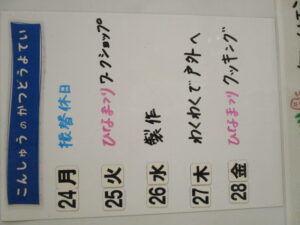 こんしゅうのかつどうよてい
24 月 振替休日
25 火 ひなまつりワークショップ
26 水 製作
27 木 わくわくで戸外へ
28 金 ひなまつりクッキング